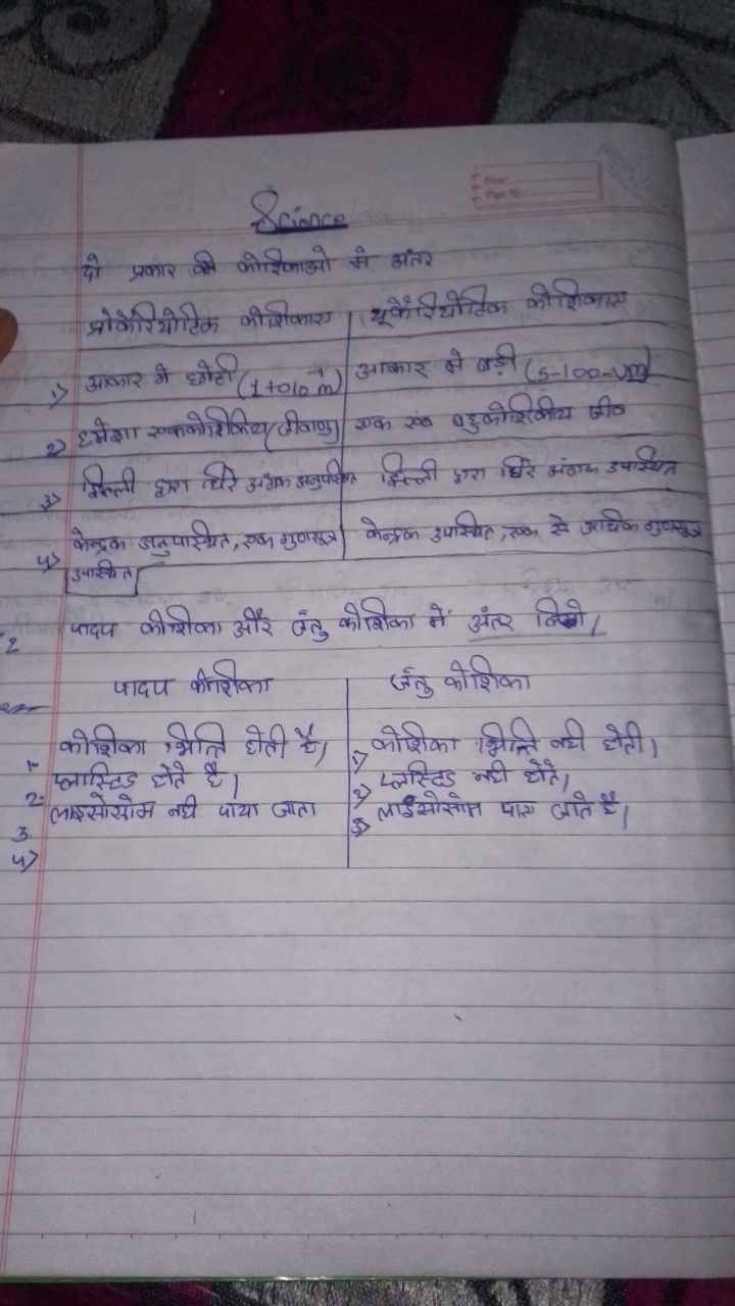 Science
दो प्रकार की कोशिकाओ मे अंतर
प्रोकेरियोटिक कोशिकाए यूकेरियोटिक कोशिकाए
1) आकार मे छोटी (1+010 m) आकार मे बड़ी (5-100-um)
2) हमेशा एककोशिकिय (जीवाणु) एक एवं बहुकोशिकीय जीव
3) झिल्ली द्वारा घिरे अंगक अनुपस्थित झिल्ली द्वारा घिरे अंगक उपास्थित
4) केन्द्रक अनुपास्थित, एक गुणसूत्र केन्द्रक उपास्थित, एक से अधिक गुणसूत्र
उपास्थित
2 पादप कोशिका और जंतु कोशिका में अंतर लिखो।
पादप कोशिका जंतु कोशिका
1- कोशिका भित्ति होती है। 1) कोशिका भित्ति नही होती।
2- प्लास्टिड होते है। 2) प्लास्टिड नही होते।
3 लाइसोसोम नही पाया जाता 3) लाईसोसोम पाए जाते है।
4)